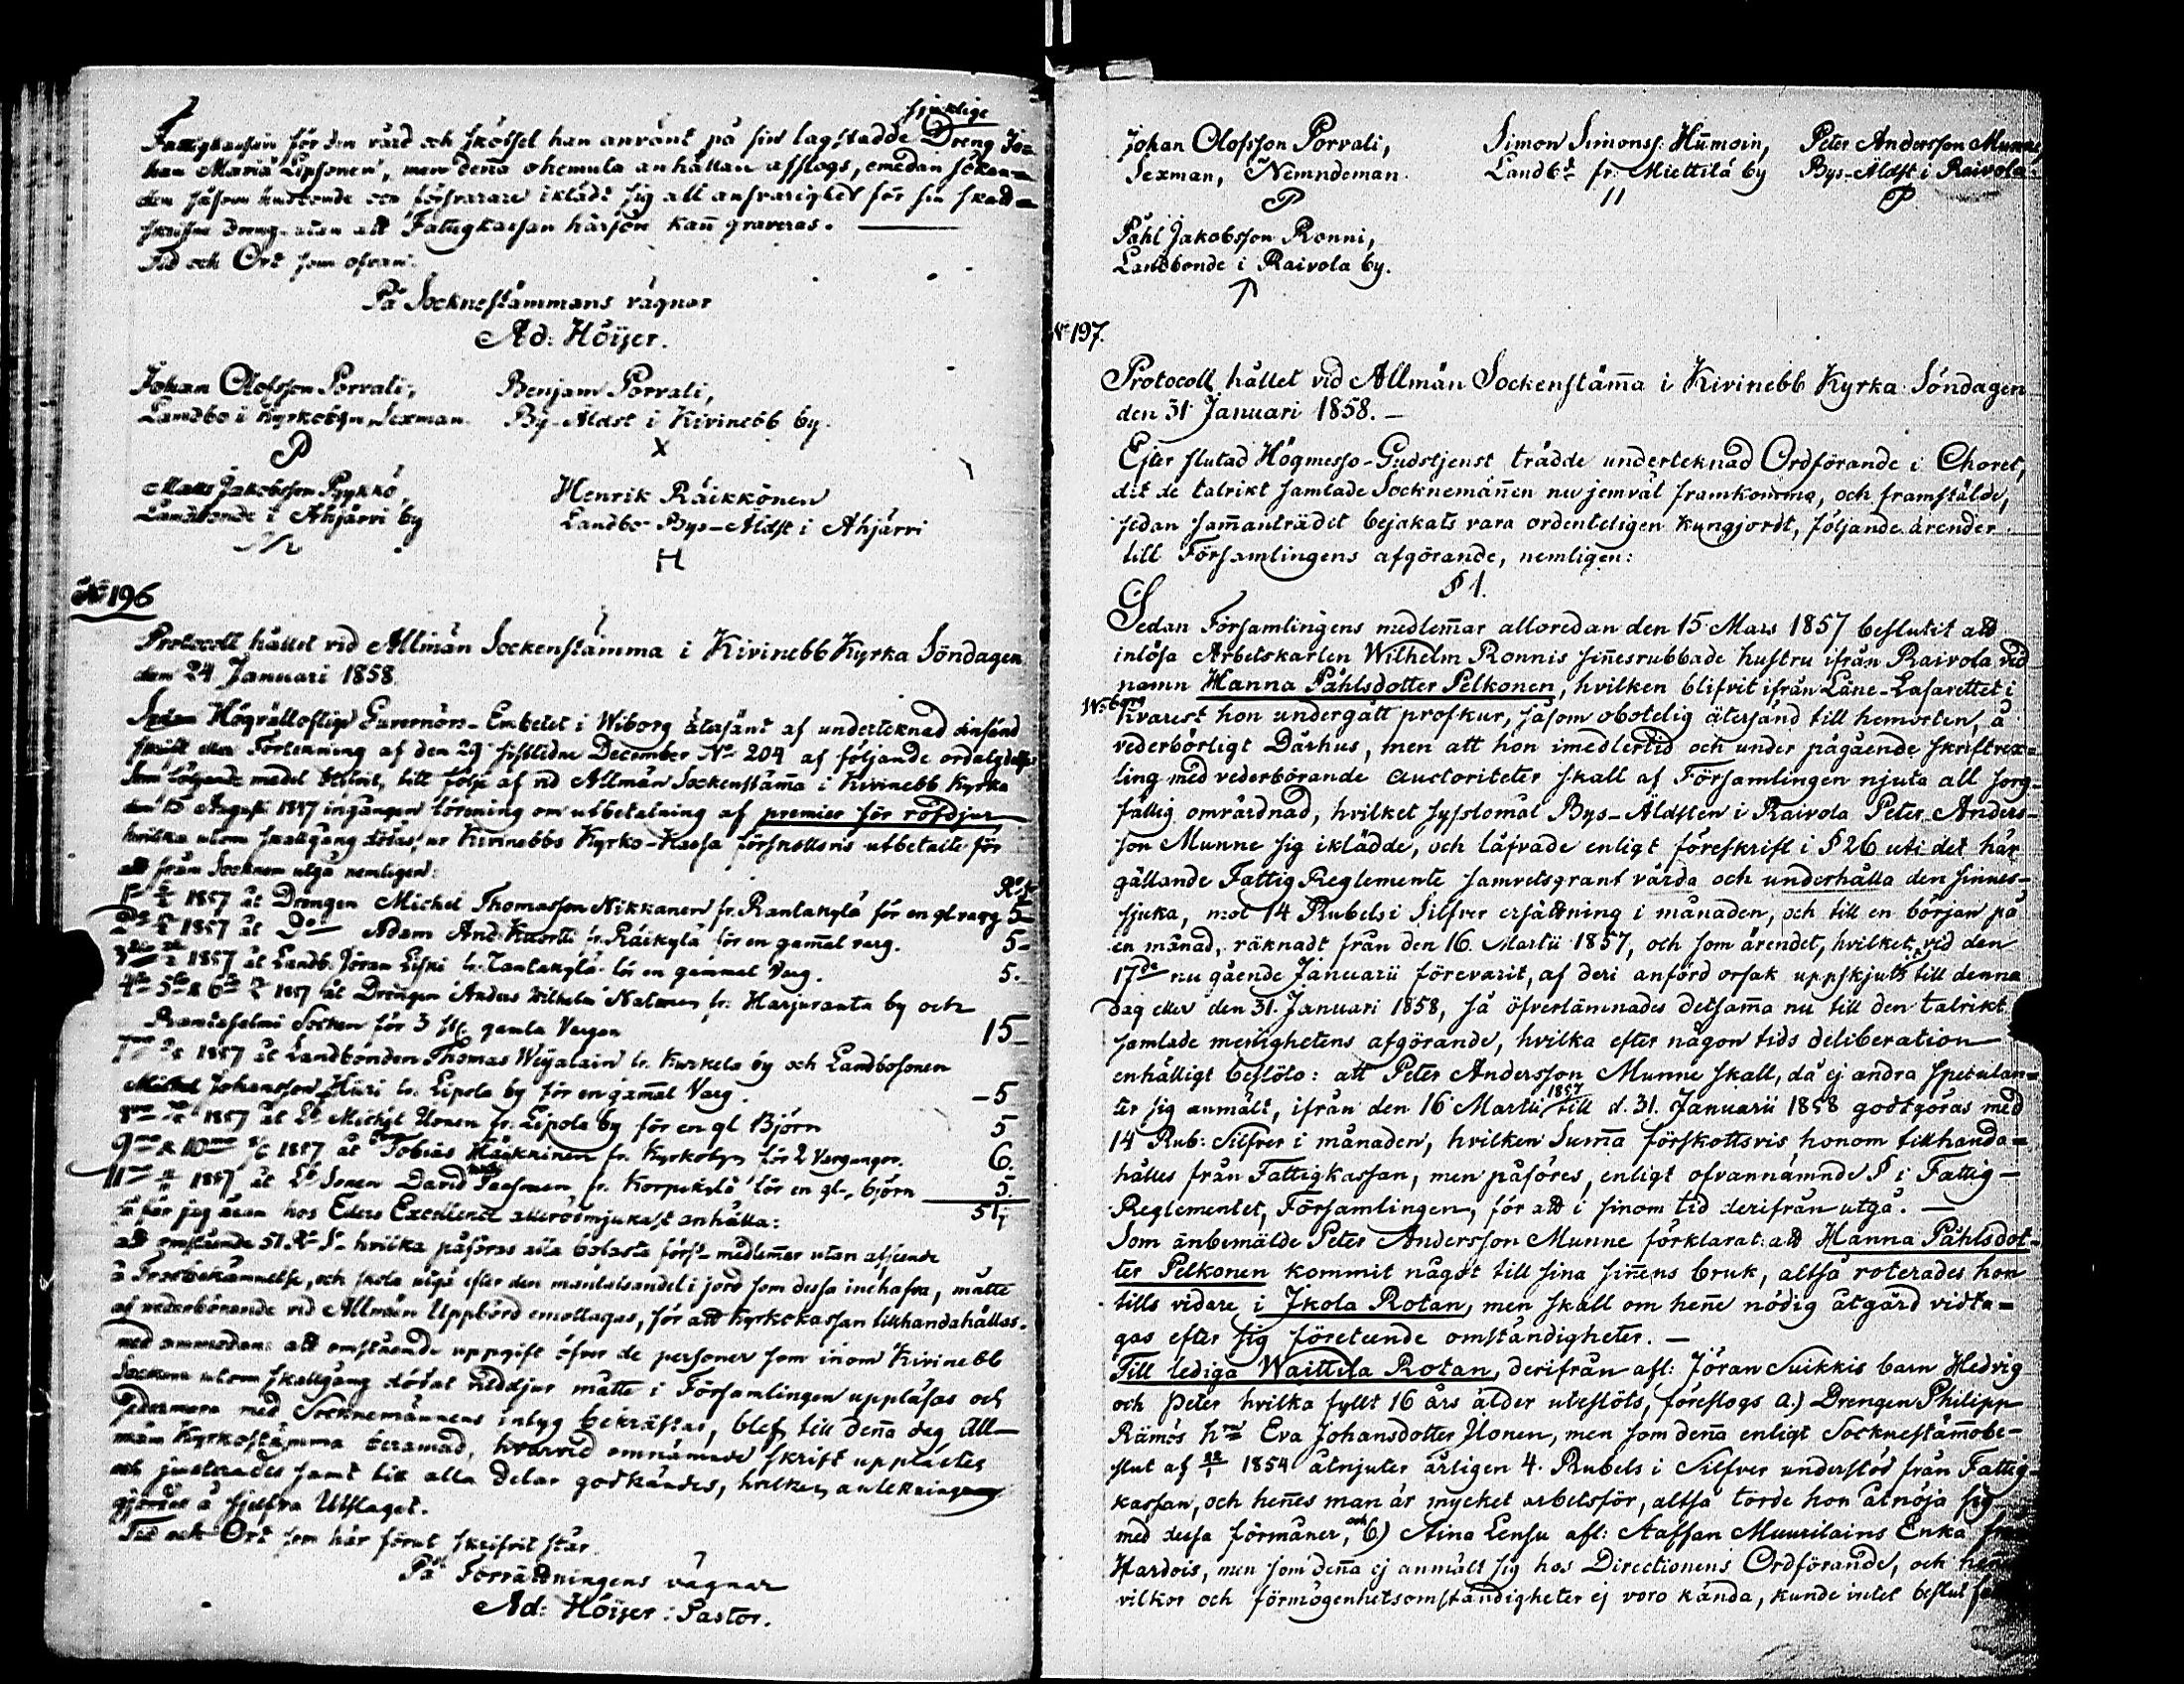 sjuklige
Fattigkassan för den vård och skötsel han använt på sin lagstadde Dreng Jo-
han Mariä Lipsonen, men denna ohemula anhållan afslogs, emedan sökan-
den såsom husbonde och försvarare iklädt sig all ansvarighet för sin skatt-
skrifne dreng, utan att Fattigkassan härföre kan graveras.
Tid och Ort som ofvan.
På Socknestämmans vägnar
Ad: Höijer.
Johan Olofsson Porvali, Benjam Porvali,
Landbo i Kyrkobyn Sexman. By-Äldst i Kivinebb by.
P X
Matts Jakobsson Pykkö, Henrik Räikkönen
Landbonde i Ahjärvi by Landbo Bys-Äldst i Ahjärvi
H
No 196
Protocoll hållet vid Allmän Sockenstämma i Kivinebb Kyrka Söndagen
den 24 Januari 1858.
Sedan Högvälloflige Guvernörs-Embetet i Wiborg återsänt af undertecknad insänd
skrift eller Förtekning af den 29 sistledne December No 204 af följande ordalydelse
den 15 Augusti 1857 ingången förening om utbetalning af premier för rofdjur
hvilka utom skallgång dödas, ur Kivinebbs Kyrko-Kassa förskottsvis utbetalt för
att från Socknen utgå nemligen:
1857 åt Drengen Michel Thomasson Nikkanen fr. Rantakylä för en gl varg 5-
1857 åt Do Adam And. Kuortti fr. Räikylä för en gammal varg. 5-
1857 åt Landb. Jöran Liski fr. Tantakylä för en gammal Varg. 5.-
4de 5te & 6te 1857 åt Drengen Anders Wilhelm Natunen fr. Harjuranta by och
Socken för 3 st. gamla Vargar 15-
1857 åt Landbonden Thomas Weijalain fr. Kurkela by och Landbosonen
Michel Johansson Hüri fr. Lipola by för en gammal Varg. -5
1857 åt Lb Michel Ilonen fr. Lipola by för en gl Björn 5
9de & 10de 1857 åt Tobias Häikkinen fr. Kyrkobyn för 2 Vargungar. 6.
11 1857 åt Lb Sonen David Paasonen fr. Korpikylä för en gl. björn 5.
så får jag äfven hos Eders Excellence allerödmjukast anhålla: 51,
att omstående 51 R. S. hvilka påföras alla bolaste förs. medlemmer utan afseende
å Trosbekännelse, och skola utgå efter den mantalsandel i jord som dessa innehafva, måtte
af vederbörande vid Allmän Uppbörd emottagas, för att Kyrkokassan tillhandahållas.
med anmodan: att omstående uppgift öfver de personer som inom Kivinebb
Socken utom skallgång dödat räddjur måtte i Församlingen uppläsas och
sedermera med Socknemännens intyg bekräftas, blef till denna dag All-
män Kyrkostämma beramad, hvarvid omnämnde skrift upplästes
och justerades samt till alla delar godkändes, hvilken antekning
gjordes å sjelfva Utslaget.
Tid och Ort som här förut skrifvit står.
På Förrättningens vägnar
Ad: Höijer: Pastor.
Johan Olofsson Porvali, Simon Simonss: Humoin, Peter Andersson Munne,
Sexman, Nemndeman. Landbd fr: Miettilä by Bys-Äldst i Raivola
P 11 P
Påhl Jakobsson Ronni,
Landbonde i Raivola by.
No 197.
Protocoll hållet vid Allmän Sockenstämma i Kivinebb Kyrka Söndagen
den 31 Januari 1858.-
Efter slutad Högmesso-Gudstjenst trädde undertecknad Ordförande i Choret,
dit de talrikt samlade Socknemännen nu jemväl framkommo, och framstälde,
sedan sammanträdet bejakats vara ordenteligen kungjordt, följande ärender
till Församlingens afgörande, nemligen:
§ 1.
Sedan Församlingens medlemmar alloredan den 15 Mars 1857 beslutit att
inlösa Arbetskarlen Wilhelm Ronnis sinnesrubbade hustru ifrån Raivola vid
namn Hanna Påhlsdotter Pelkonen, hvilken blifvit ifrån Läne-Lasarettet i
Wiborg
hvarest hon undergått profkur, såsom obotelig återsänd till hemorten, å
vederbörligt Dårhus, men att hon imedlertid och under pågående skriftvex-
ling med vederbörande auctoriteter skall af Församlingen njuta all sorg-
fällig omvårdnad, hvilket syslomål Bys-Äldsten i Raivola Peter Anders-
son Munne sig iklädde, och låfvade enligt föreskrift i § 26 uti det här
gällande Fattig Reglemente samvetsgrant vårda och underhålla den sinnes-
sjuka, mot 14 Rubels i Silfver ersättning i månaden, och till en början på
en månad, räknadt från den 16. Martii 1857, och som ärendet, hvilket vid den
17de nu gående Januarii förevarit, af deri anförd orsak uppskjutits till denna
dag eller den 31. Januari 1858, så öfverlämnades detsamma nu till den talrikt
samlade menighetens afgörande, hvilka efter någon tids deliberation
enhälligt beslöto: att Peter Andersson Munne skall, då ej andra spekulan-
ter sig anmält, ifrån den 16 Martii 1857 till d. 31. Januarii 1858 godtgöras med
14 Rub: Silfver i månaden, hvilken Summa förskottsvis honom tillhanda-
hålles från Fattigkassan, men påföres, enligt ofvannämnde § i Fattig-
Reglementet, Församlingen, för att i sinom tid derifrån utgå. -
Som änbemälde Peter Andersson Munne förklarat: att Hanna Påhlsdot-
ter Pelkonen kommit något till sina sinnens bruk, altså roterades hon
tills vidare i Ikola Rotan, men skall om henne nödig åtgärd vidta-
gas efter sig företeende omständigheter. -
Till lediga Waittila Rotan, derifrån afl: Jöran Suikkis barn Hedvig
och Peter hvilka fyllt 16 års ålder uteslöts, föreslogs a.) Drengen Philipp
Rämös hru Eva Johansdotter Ilonen, men som denna enligt Socknestämmobe-
slut af 1854 åtnjuter årligen 4. Rubels i Silfver understöd från Fattig-
kassan, och hennes man är mycket arbetsför, altså torde hon åtnöja sig
med dessa förmåner, och b) Aina Lensu afl: Staffan Muurilains Enka
Hardois, men som denna ej anmält sig hos Directionens Ordförande, och hennes
vilkor och förmögenhetsomständigheter ej voro kända, kunde intet beslut